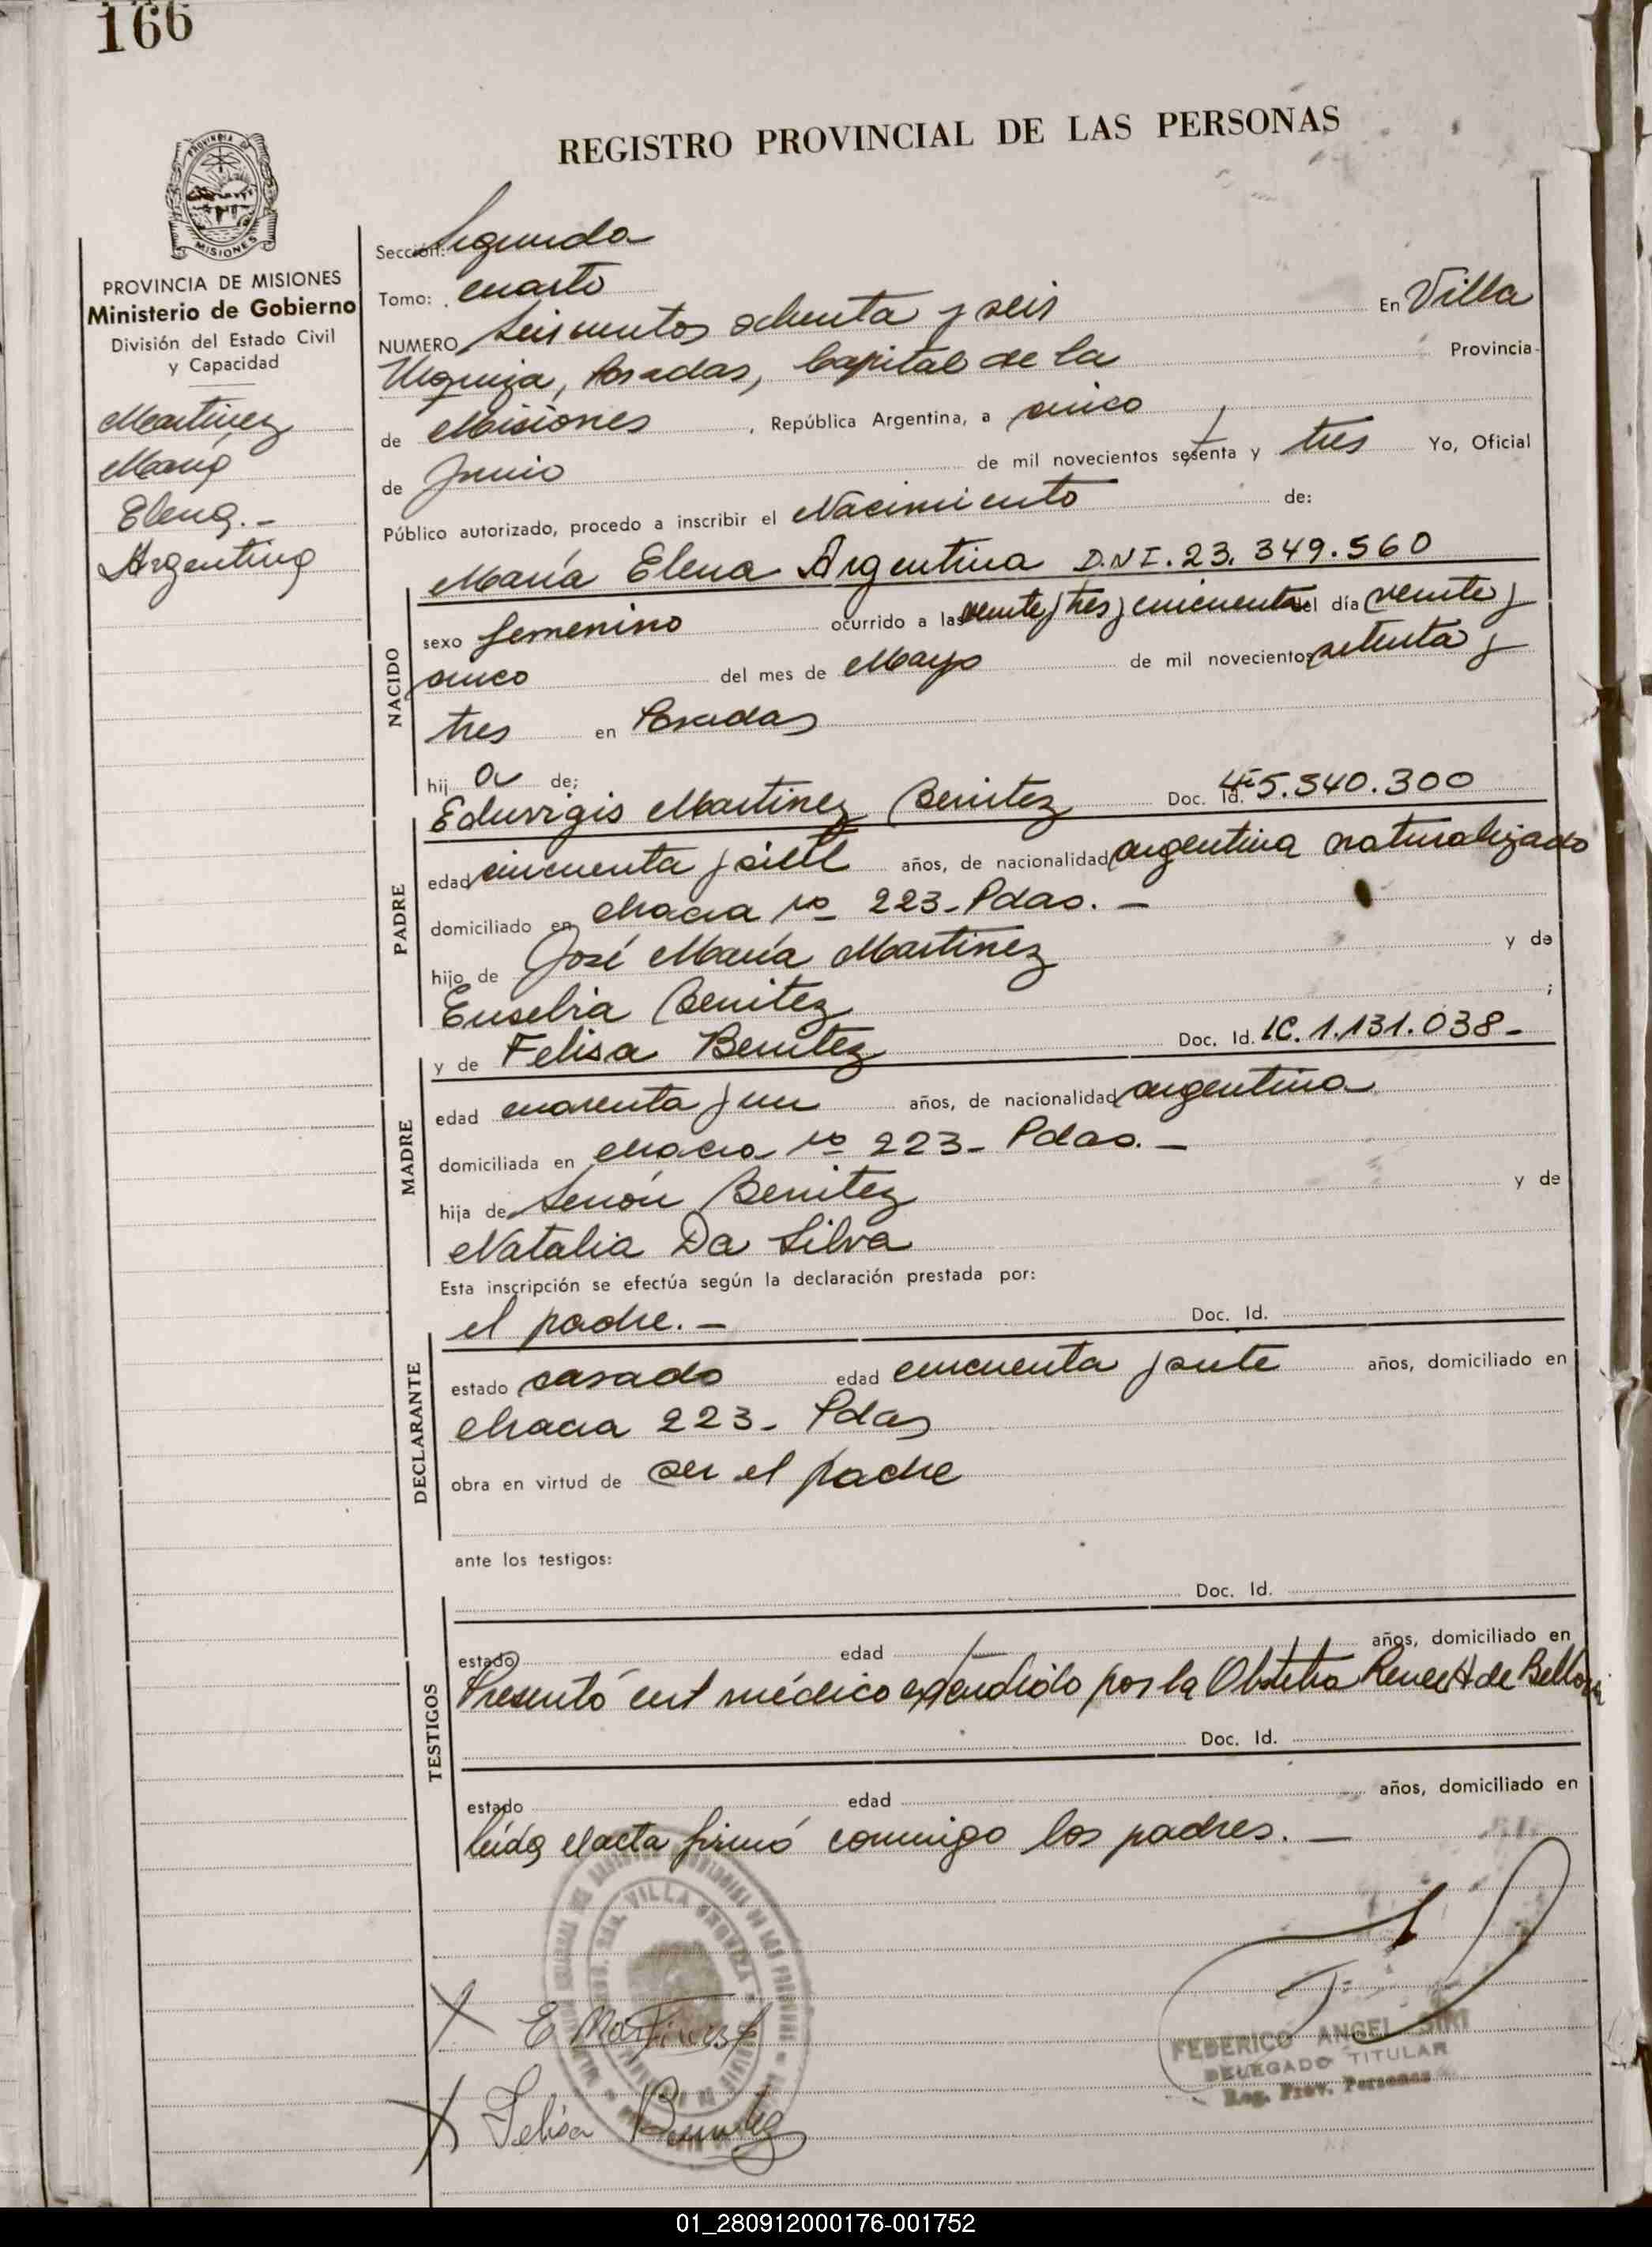 166
REGISTRO PROVINCIAL DE LAS PERSONAS
PROVINCIA DE MISIONES
MISIONES
PROVINCIA DE MISIONES
Ministerio de Gobierno
División del Estado Civil
y Capacidad
Martinez
María
Elena.-
Argentina
Sección: Segunda
Tomo: cuarto
NUMERO Seiscientos ochenta y seis En Villa
Urquiza, Posadas, Capital de la Provincia
de Misiones, República Argentina, a cinco
de Junio de mil novecientos setenta y tres Yo, Oficial
Público autorizado, procedo a inscribir el Nacimiento de:
María Elena Argentina D.N.I. 23.349.560
NACIDO
sexo femenino ocurrido a las veinte y tres y cincuenta del día veinte y
cinco del mes de Mayo de mil novecientos setenta y
tres en Posadas
hij a de;
PADRE
Eduvigis Martinez Benitez Doc. Id. 5.540.300
edad cincuenta y siete años, de nacionalidad argentina naturalizado
domiciliado en chacra no 223-Pdas.-
hijo de José María Martinez y de
Eusebia Benitez;
MADRE
y de Felisa Benitez Doc. Id. LC. 1.131.038-
edad cuarenta y un años, de nacionalidad argentina
domiciliada en chacra no 223- Pdas.-
hija de Senón Benitez y de
Natalia Da Silva
Esta inscripción se efectúa según la declaración prestada por:
el padre.- Doc. Id.
DECLARANTE
estado casado edad cincuenta y siete años, domiciliado en
chacra 223- Pdas
obra en virtud de ser el padre
ante los testigos:
Doc. Id.
TESTIGOS
estado edad años, domiciliado en
Presentó cert médico extendido por la Obstetra Renee H de
Doc. Id.
estado edad años, domiciliado en
leída el acta firmó conmigo los padres.-
VILLA URQUIZA
X E Martinez
FEDERICO ANGEL SIRI
DELEGADO TITULAR
Reg. Prov. Personas
X Felisa Benitez
01_280912000176-001752